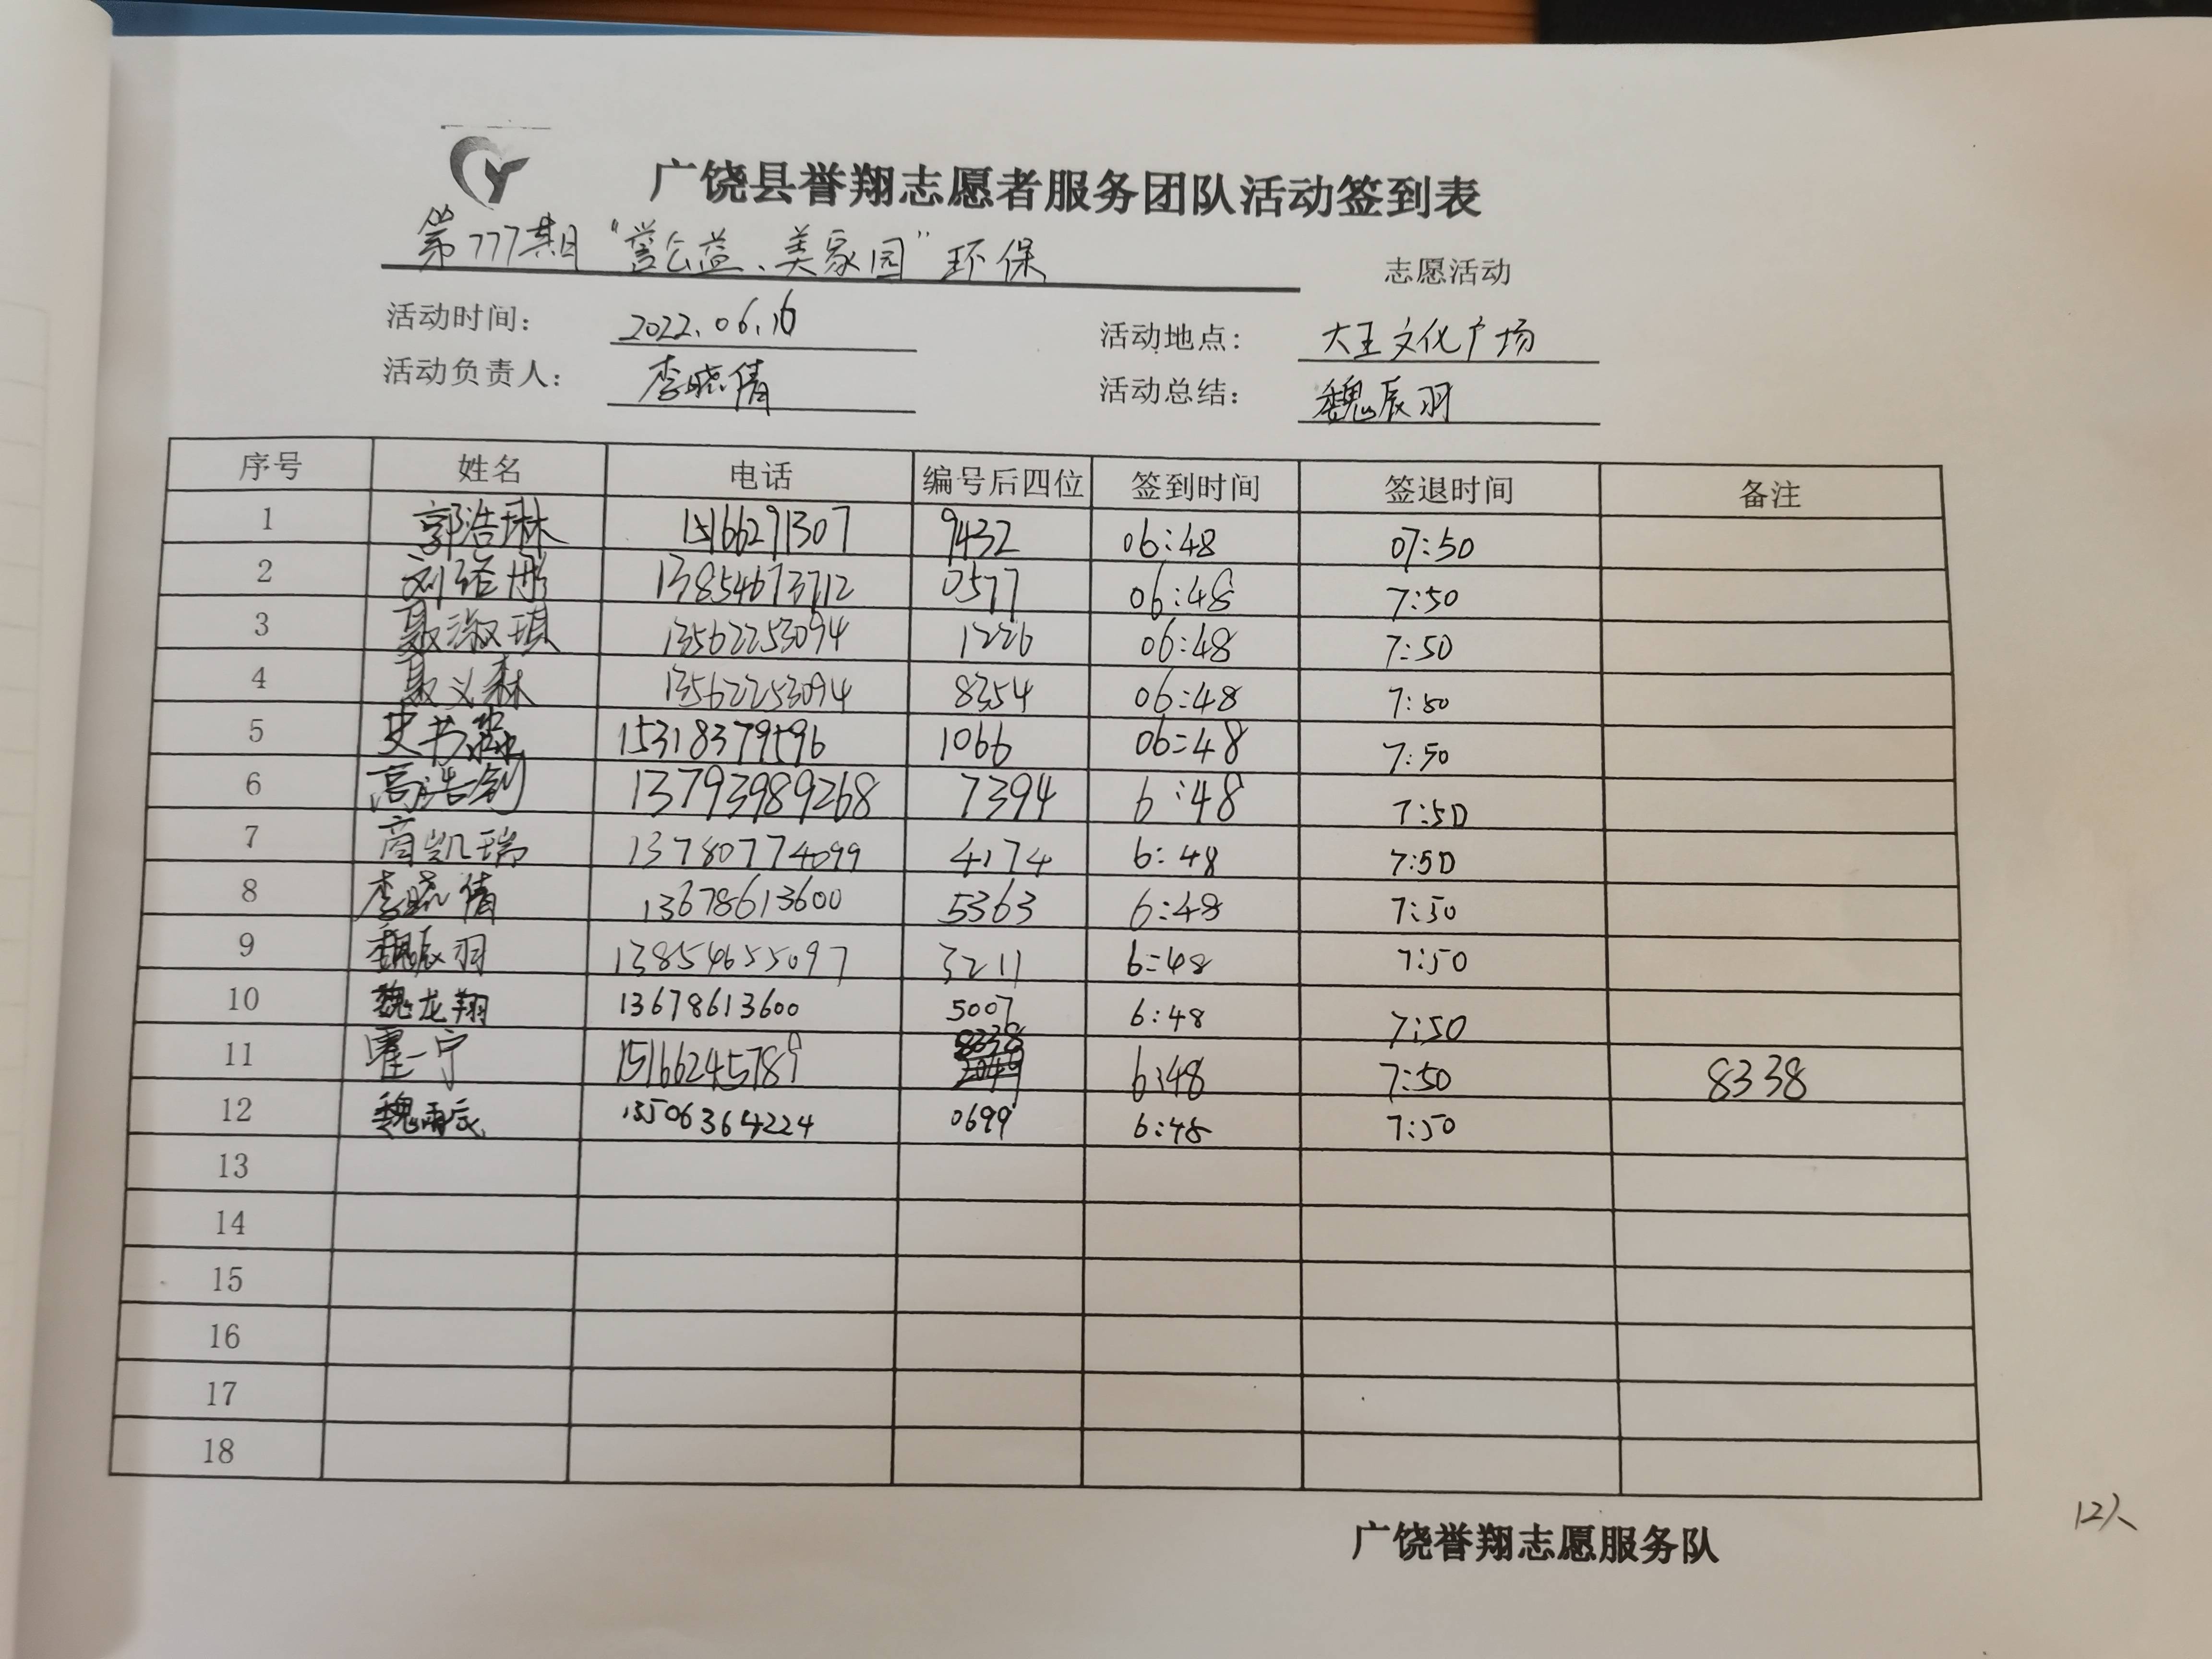 广饶县誉翔志愿者服务团队活动签到表
第777期"誉公益、美家园"环保 志愿活动
活动时间: 2022.06.16 活动地点: 大王文化广场
活动负责人: 李晓倩 活动总结: 魏辰羽
序号 姓名 电话 编号后四位 签到时间 签退时间 备注
1 郭浩琳 15166291307 9432 06:48 07:50
2 刘洺彤 13854673712 0577 06:48 7:50
3 聂淑琪 13562253094 1226 06:48 7:50
4 聂义森 13562253094 8354 06:48 7:50
5 史书淼 15318379596 1066 06:48 7:50
6 高浩钊 13793989268 7394 6:48 7:50
7 商凯瑞 13780774099 4174 6:48 7:50
8 李晓倩 13678613600 5363 6:48 7:50
9 魏辰羽 13854655097 3211 6:48 7:50
10 魏龙翔 13678613600 5007 6:48 7:50
11 霍一宁 15166245789 6:48 7:50 8338
12 魏雨辰 13506364224 0699 6:48 7:50
13
14
15
16
17
18
广饶誉翔志愿服务队
12人